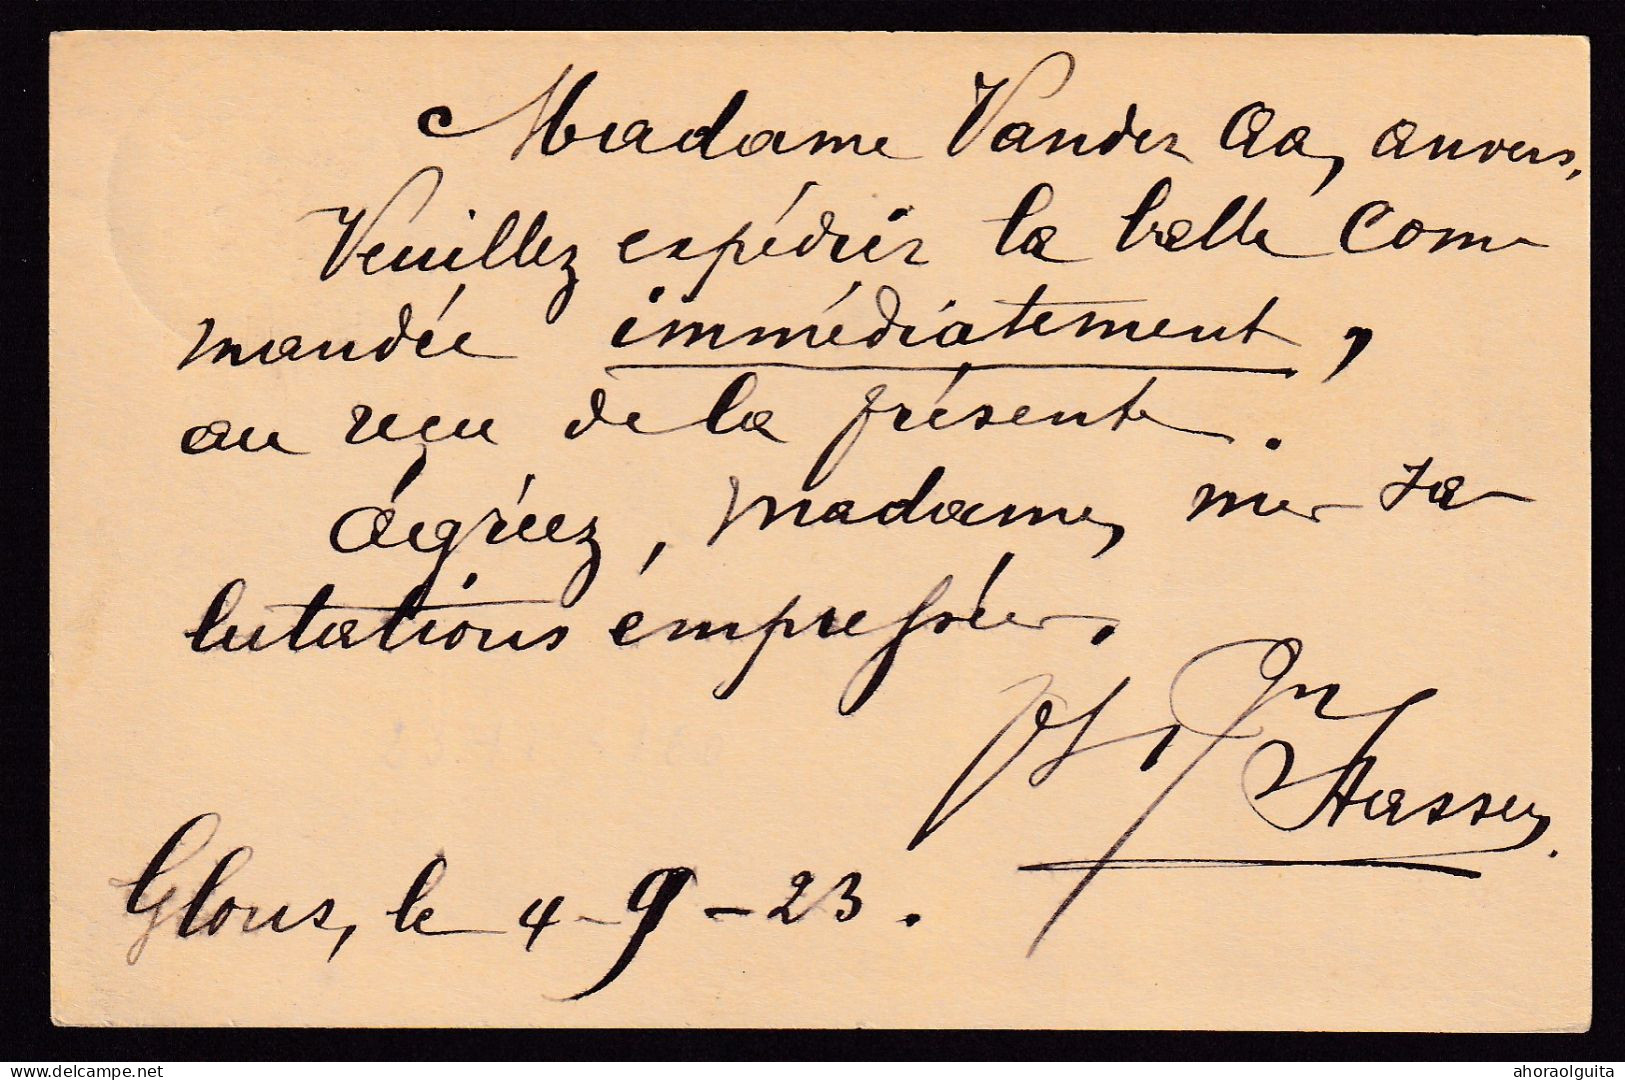 Madame Vander Aa, Anvers,
Veuillez expédier la balle com-
mandée immédiatement,
au reçu de la présente.
Agréez, Madame, mes sa-
lutations empressées.
Hassen
Glons, le 4-9-23.
delcampe.net
ahoraolguita